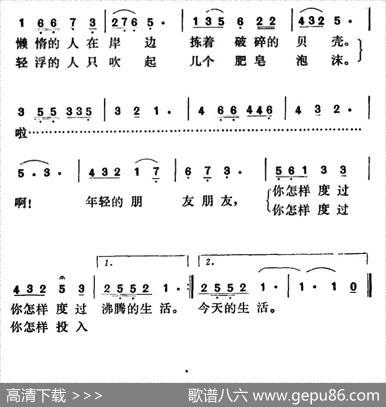 1 66 7 3 | 276 5· | 135 6 22 | 432 5· |
懒惰的人在岸边 拣着破碎的贝壳。
轻浮的人只吹起 几个肥皂泡沫。
3 55 335 | 3 2 1· | 4 66 446 | 4 3 2· |
啦
5·3· | 432 1 7 | 6 7 3· | 561 3 3 |
啊! 年轻的朋友朋友, 你怎样度过
你怎样度过
1. 2.
432 5 3 | 2552 1· :| 2552 1· | 1· 1 0 ‖
你怎样度过 沸腾的生活。 今天的生活。
你怎样投入
高清下载 >>> 歌谱八六 www.gepu86.com